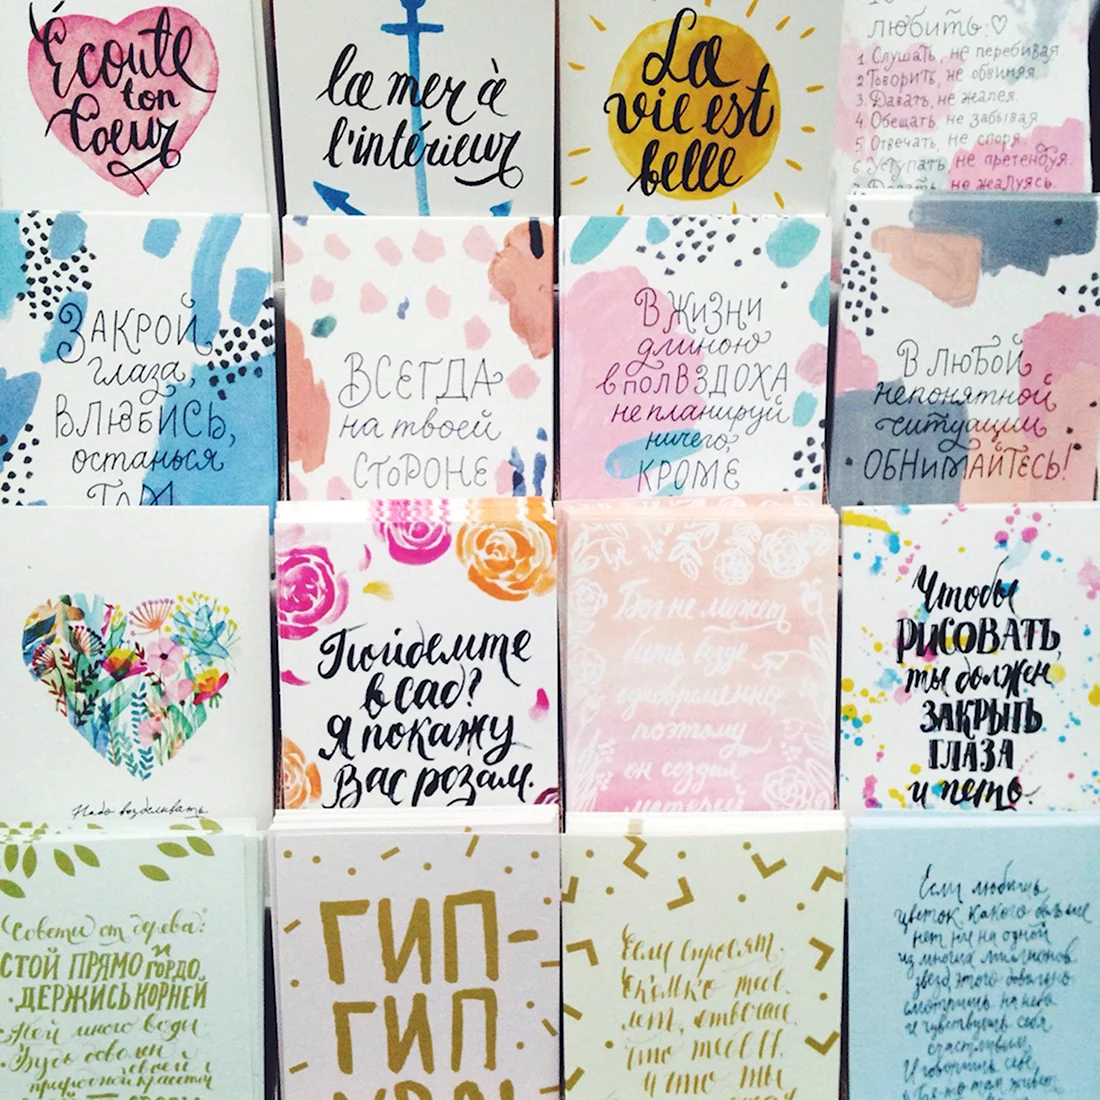 Écoute
ton
Coeur
la mer à
l'intérieur
La
vie est
belle
любить:
1. Слушать, не перебивая
2. Говорить, не обвиняя
3. Давать, не жалея.
4. Обещать, не забывая
5. Отвечать, не споря.
6. Уступать, не претендуя.
не жалуясь.
ЗАКРОЙ
глаза,
ВЛЮБИСЬ,
останься
ТАМ
ВСЕГДА
на твоей
СТОРОНЕ
В ЖИЗНИ
длиною
в пол ВЗДОХА
не планируй
ничего,
КРОМЕ
В ЛЮБОЙ
непонятной
ситуации
ОБНИМАЙТЕСЬ!
Надо возделывать
Пойдемте
в сад?
Я покажу
Вас розам.
Бог не может
быть везде
одновременно,
поэтому
он создал
матерей
Чтобы
РИСОВАТЬ,
ты должен
ЗАКРЫТЬ
ГЛАЗА
и петь.
Советы от дерева:
СТОЙ ПРЯМО И ГОРДО,
ДЕРЖИСЬ КОРНЕЙ
Пей много воды
Будь доволен
своей
природной красотой
ГИП-
ГИП
УРА!
Если спросят.
сколько тебе
лет, отвечай
что тебе
и что ты
Если любишь
цветок какого больше
нет ни на одной
из многих миллионов
звёзд этого довольно
смотришь на небо
и чувствуешь себя
счастливым
И говоришь себе
где-то там живёт